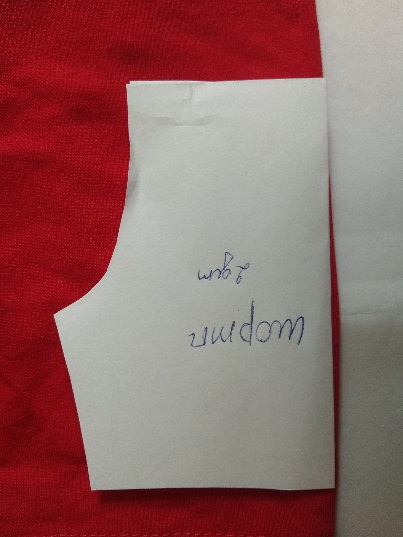 шорти
2 дет